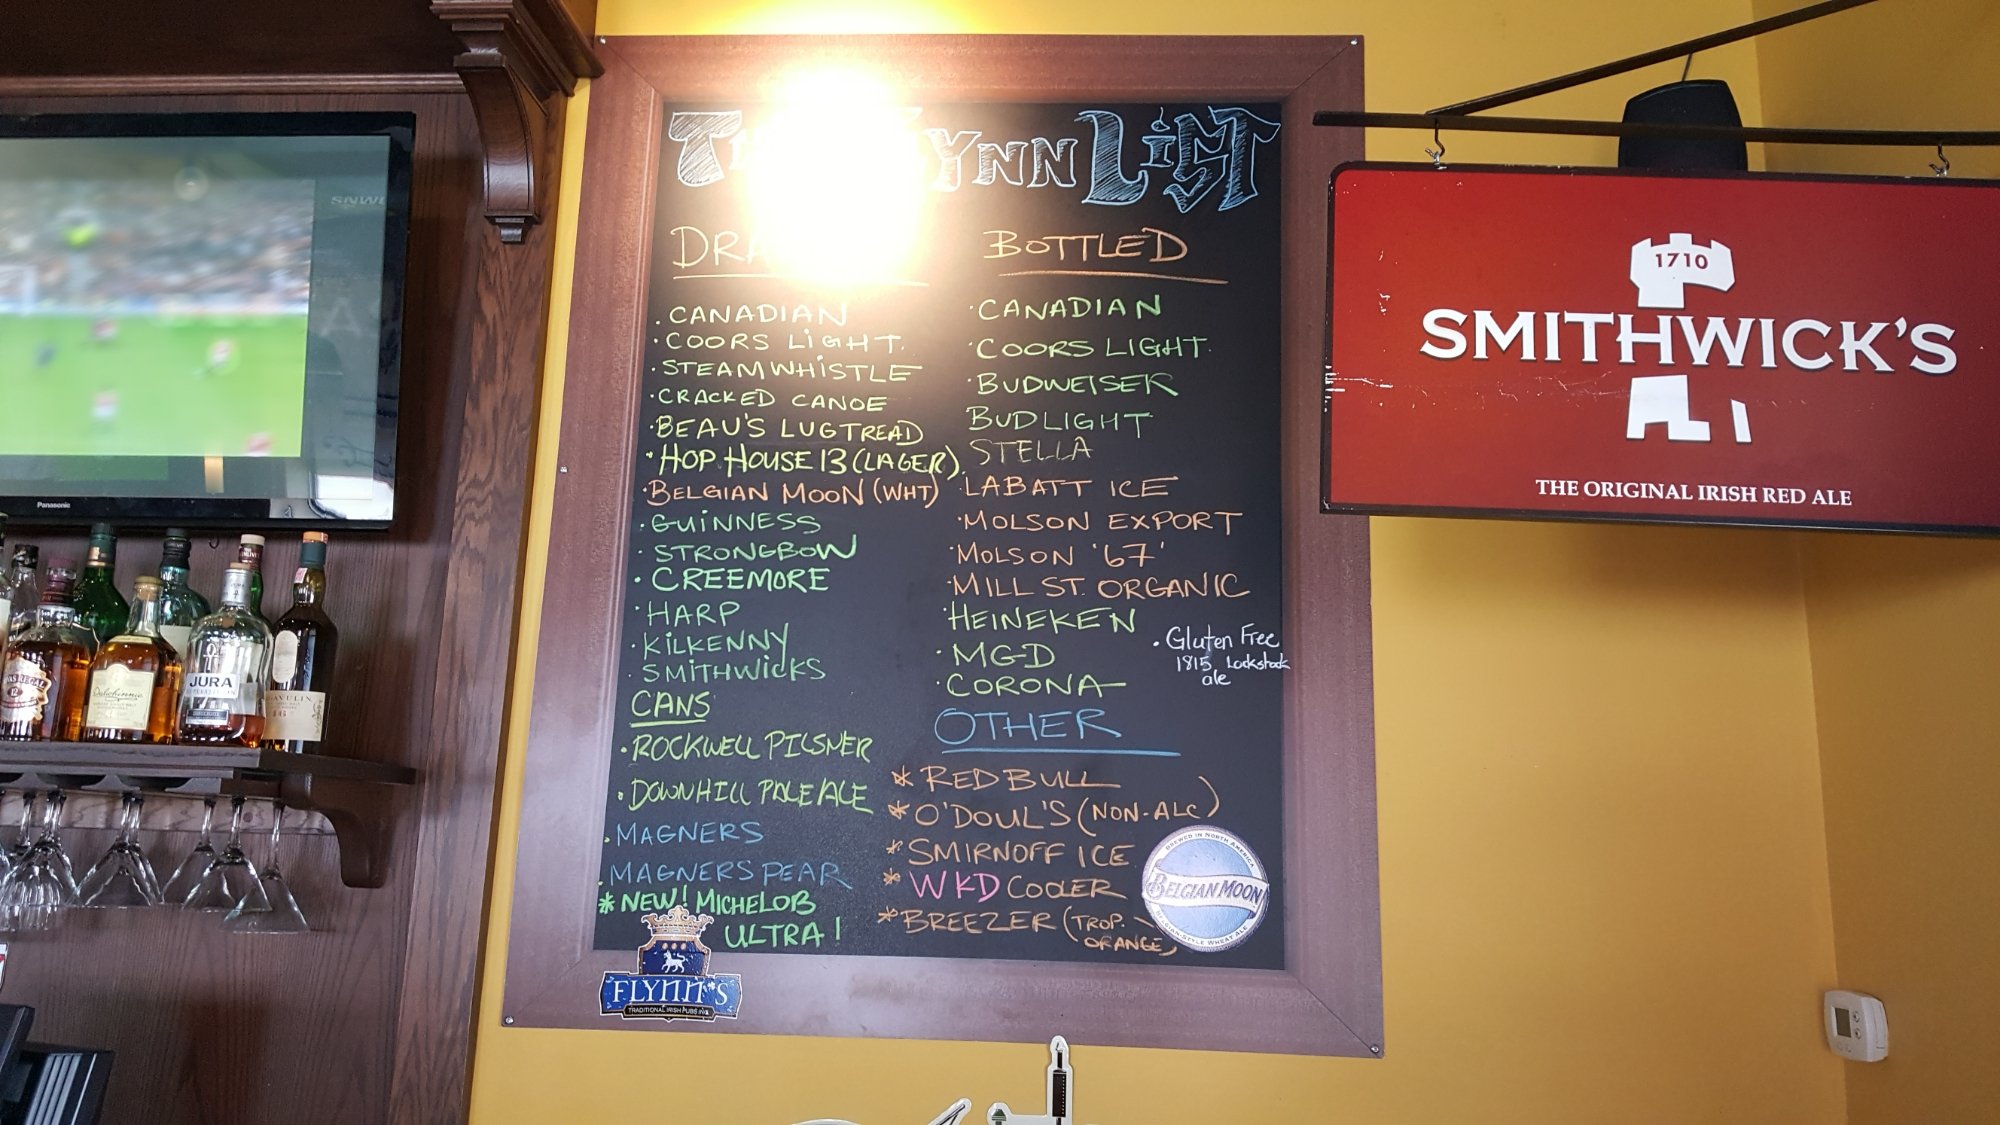 LYNN LIST
BOTTLED
. CANADIAN
. COORS LIGHT
. STEAMWHISTLE
. CRACKED CANOE
. BEAU'S LUGTREAD
. HOP HOUSE 13 (LAGER)
. BELGIAN MOON (WHT)
. GUINNESS
. STRONGBOW
. CREEMORE
. HARP
. KILKENNY
SMITHWICKS
CANS
. ROCKWELL PILSNER
. DOWNHILL PALE ALE
. MAGNERS
. MAGNERS PEAR
* NEW! MICHELOB
ULTRA!
. CANADIAN
. COORS LIGHT
. BUDWEISER
BUD LIGHT
STELLA
. LABATT ICE
. MOLSON EXPORT
. MOLSON '67'
. MILL ST. ORGANIC
. HEINEKEN
. MGD
. CORONA
. Gluten Free
1815, Lockstock
ale
OTHER
* RED BULL
* O'DOUL'S (NON-ALC)
* SMIRNOFF ICE
* WKD COOLER
* BREEZER (TROP.
ORANGE)
BREWED IN NORTH AMERICA
BELGIAN MOON
BELGIAN-STYLE WHEAT ALE
FLYNN'S
TRADITIONAL IRISH PUBS INC.
1710
SMITHWICK'S
THE ORIGINAL IRISH RED ALE
Panasonic
JURA